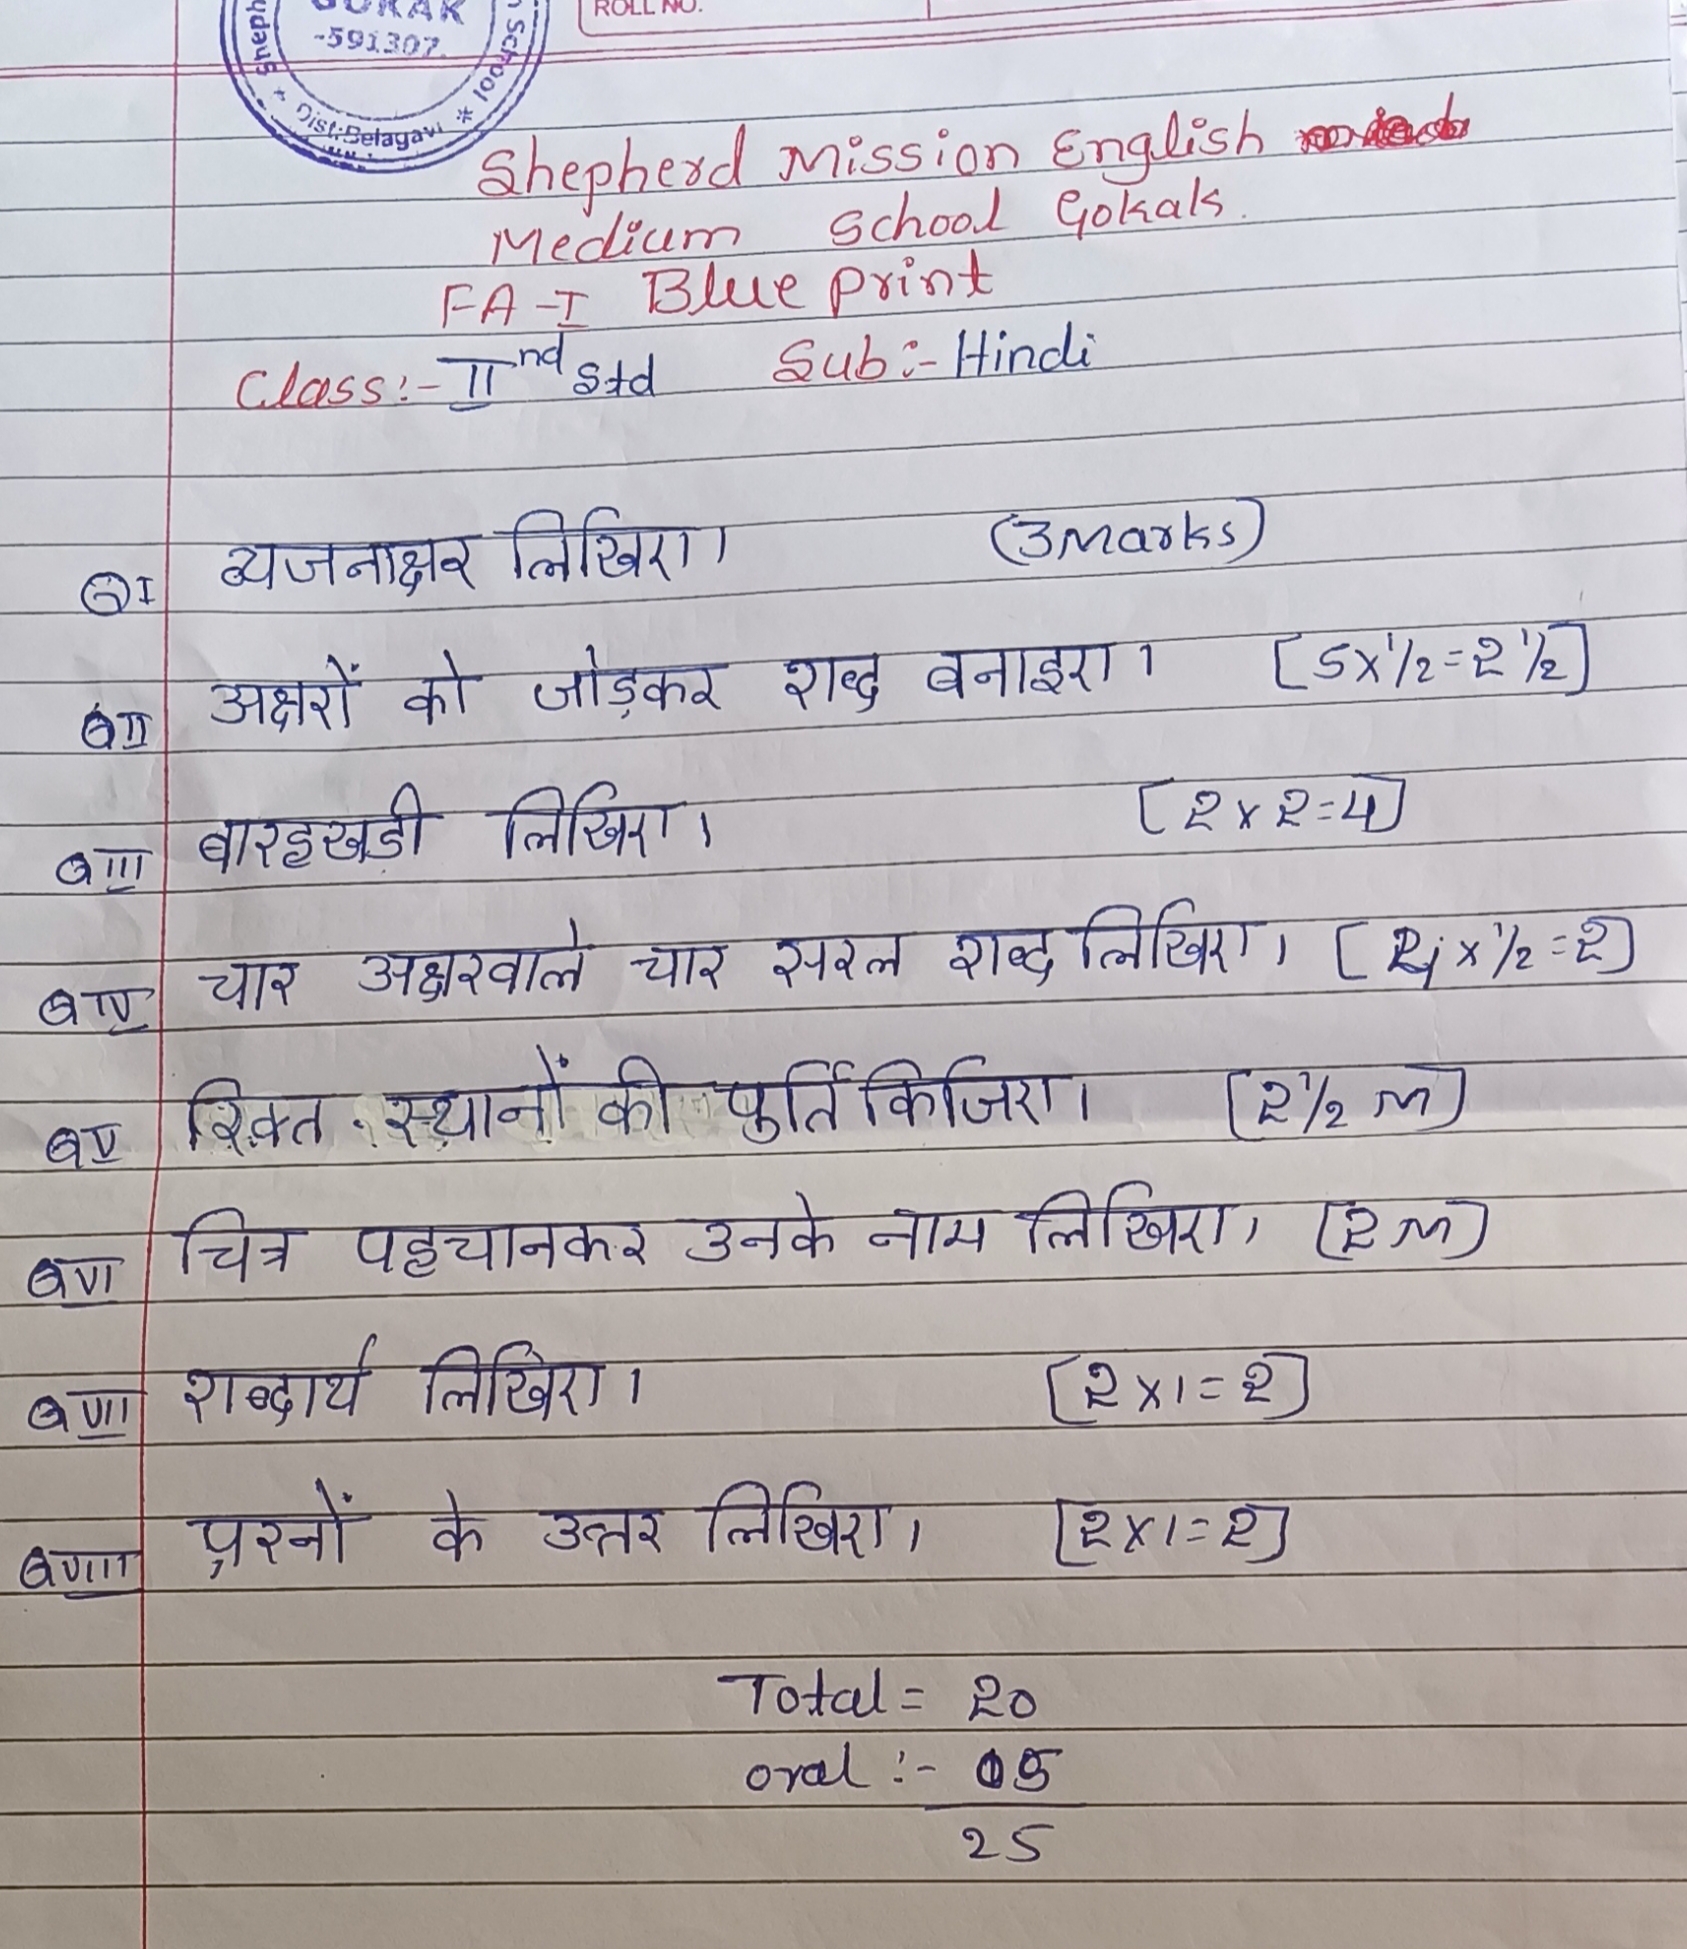 GOKAK
-591307.
School *
Dist:Belagavi
ROLL NO.
Shepherd Mission English
Medium School Gokak.
FA-I Blue print
Class:- IInd Std Sub:- Hindi
QI व्यजनाक्षर लिखिए। (3Marks)
QII अक्षरों को जोड़कर शब्द बनाइए। [5x1/2=2 1/2]
QIII बारहखडी लिखिए। [2x2=4]
QIV चार अक्षरवाले चार सरल शब्द लिखिए। [4x1/2=2]
QV रिक्त स्थानों की पुर्ति किजिए। [2 1/2 M]
QVI चित्र पहचानकर उनके नाम लिखिए। [2M]
QVII शब्दार्थ लिखिए। [2x1=2]
QVIII प्रश्नों के उत्तर लिखिए। [2x1=2]
Total = 20
oral :- 05
25